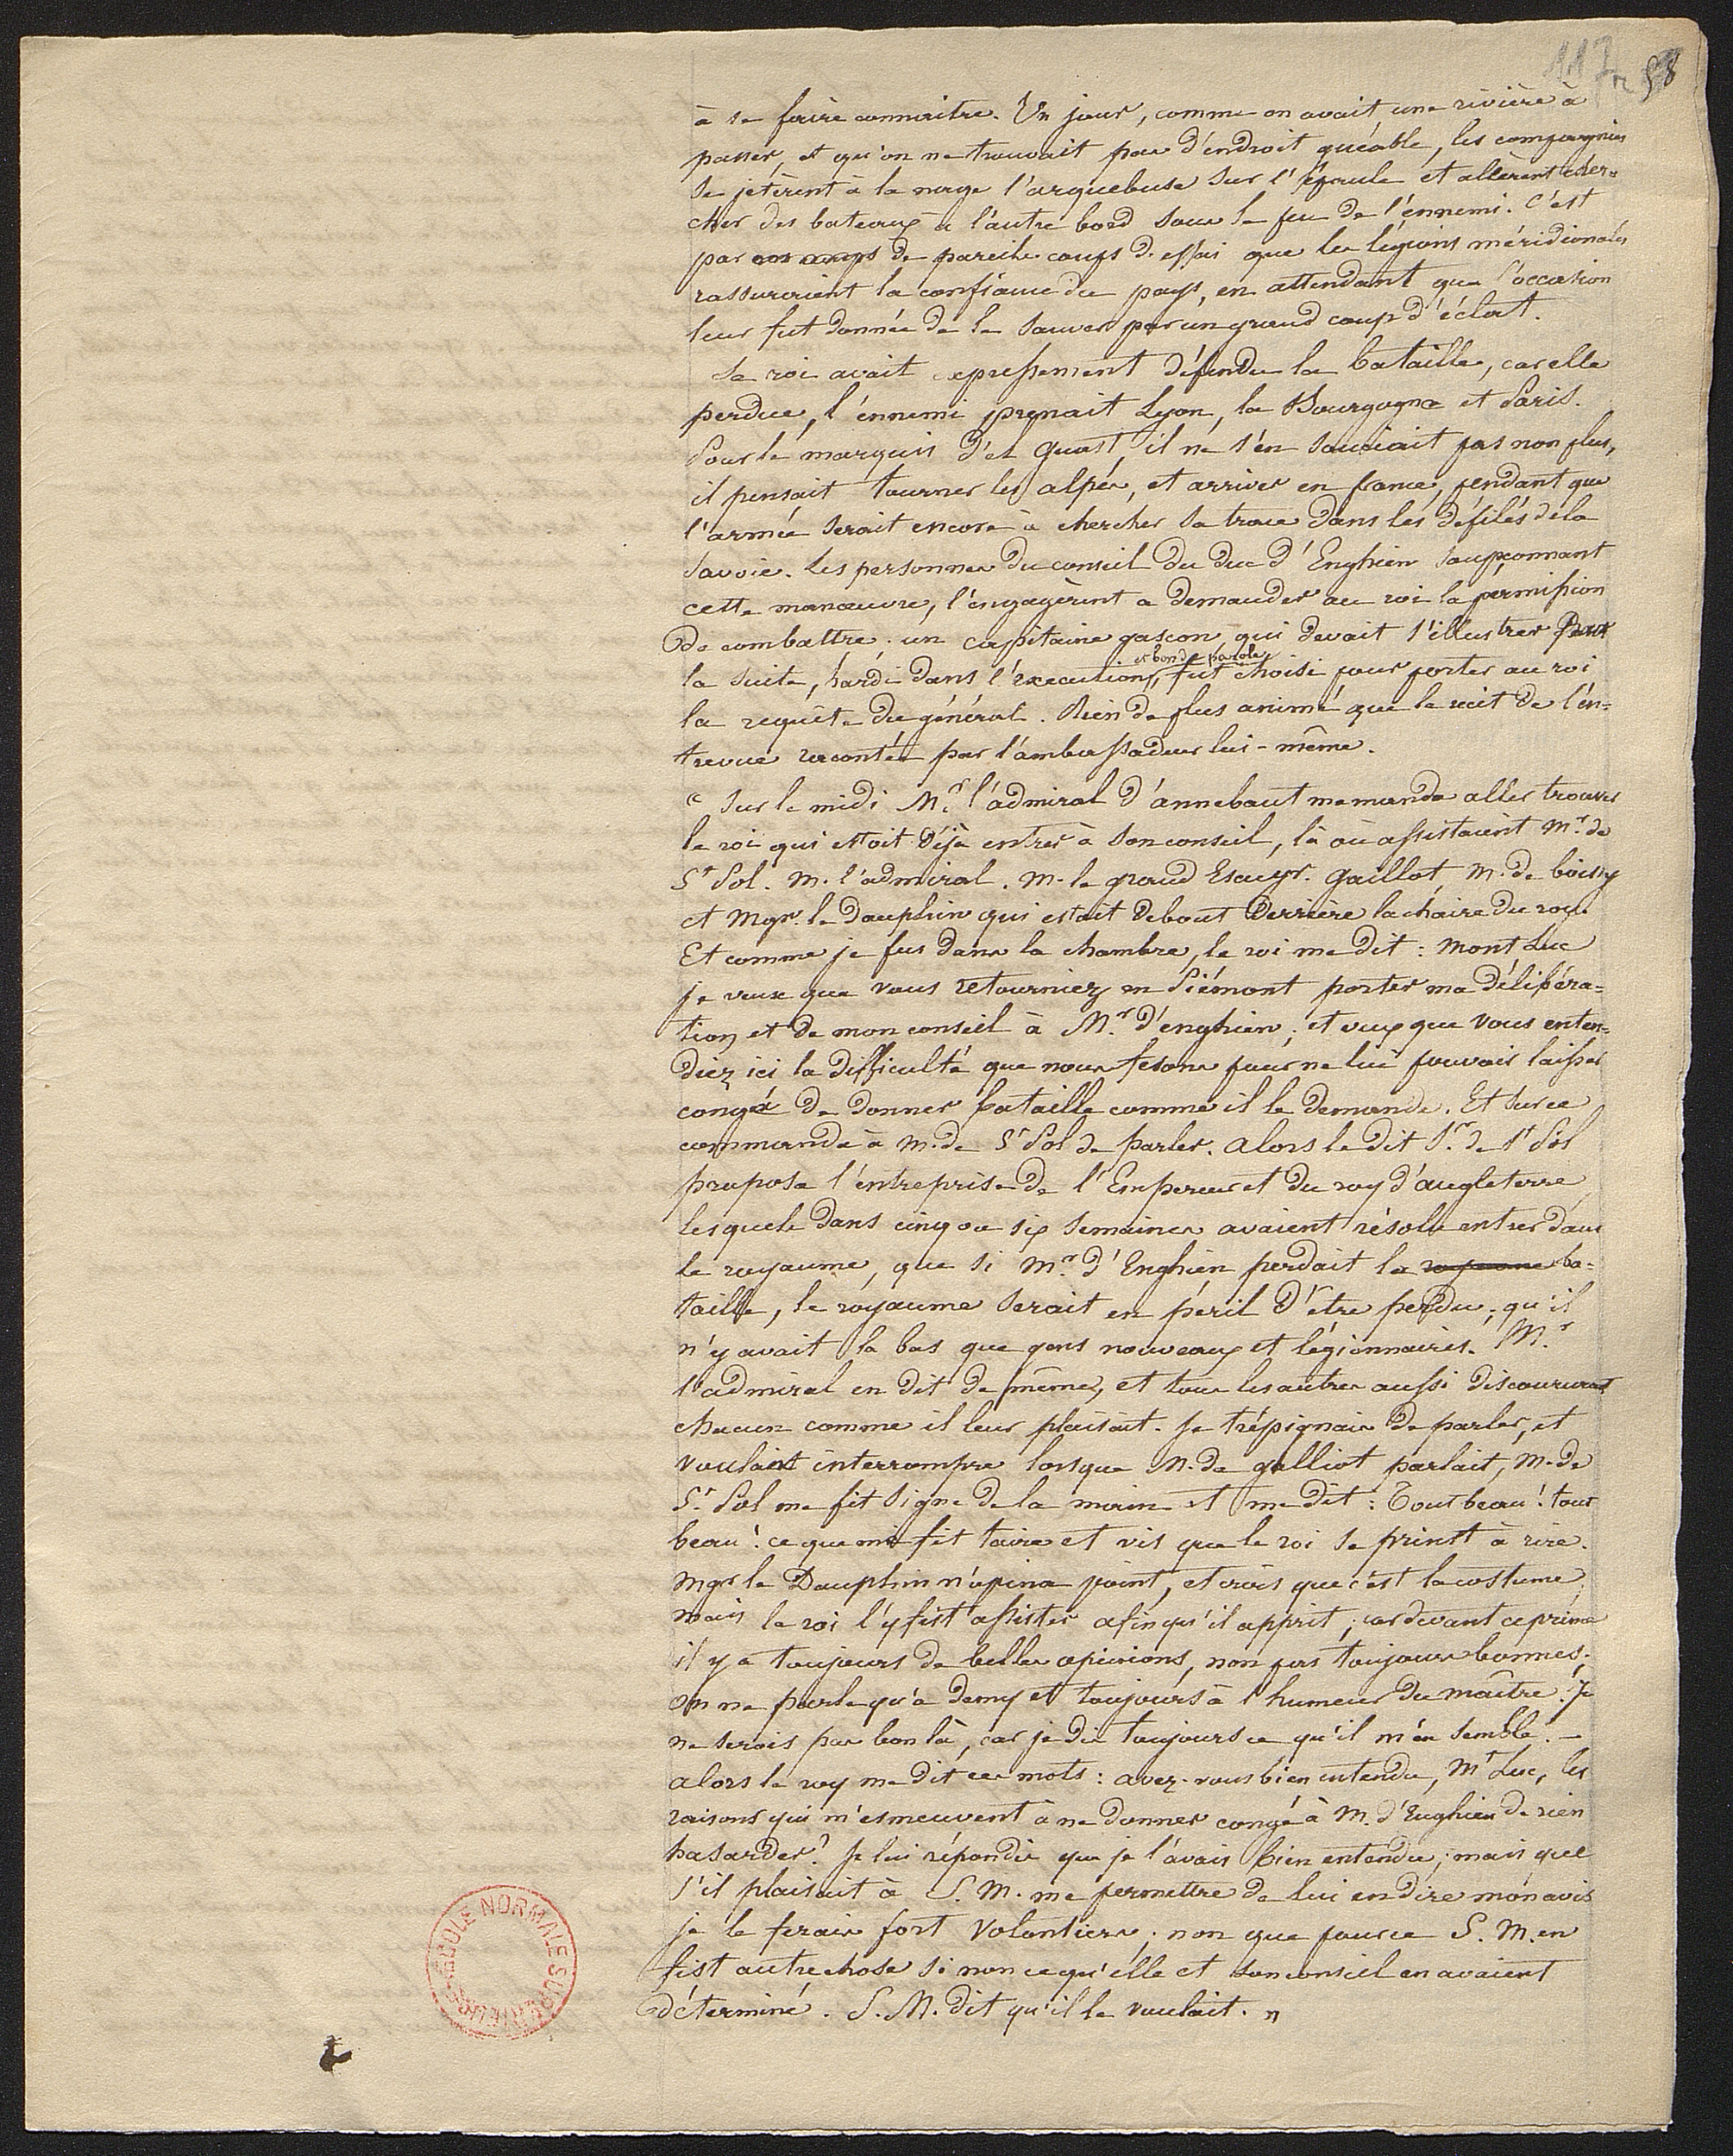 117 58
à se faire connaitre. Un jour, comme on avait une rivière à
passer, et qu'on ne trouvait pas d'endroit guéable, les compagnies
se jetèrent à la nage l'arquebuse sur l'épaule et allèrent cher=
cher des bateaux à l'autre bord sous le feu de l'ennemi. C'est
par de pareils coups d'essai que les légions méridionales
rassuraient la confiance du pays, en attendant que l'occasion
leur fut donnée de le sauver par un grand coup d'éclat.
Le roi avait expressement défendu la bataille, car elle
perdue, l'ennemi prenait Lyon, la Bourgogne et Paris.
Pour le marquis del Guast, il ne s'en souciait pas non plus,
il pensait tourner les alpes, et arriver en france, pendant que
l'armée serait encore à chercher sa trace dans les défilés de la
Savoie. Les personnes du conseil du duc d'Enghien soupçonnant
cette manœuvre, l'engagèrent a demander au roi la permission
de combattre; un capitaine gascon qui devait s'illustrer par
et bonde parole
la suite, hardi dans l'execution, fut choisi pour porter au roi
la requête du général. Rien de plus animé que le récit de l'en=
trevue racontée par l'ambassadeur lui-même.
" Sur le midi Mr. l'admiral d'annebaut me manda aller trouver
le roi qui estoit déjà entrer à son conseil, là où assistaient Mr. de
St Pol. M. l'admiral. M. le grand Escuyr. Gaillot, M. de boissy
et Mgr. le Dauphin qui estait debout derrière la chaire du roy.
Et comme je fus dans la chambre, le roi me dit: Mont Luc
je veux que vous retourniez en Piémont porter ma délibéra=
tion et de mon conseil à Mr. d'enghien; et veux que vous enten=
diez ici la difficulté que nous fesons pour ne lui pouvoir laisser
congé de donner bataille comme il le demande. Et sur ce
commanda à M. de St Pol de parler. Alors le dit Sr. de St Pol
proposa l'entreprise de l'Empereur et du roy d'angleterre
lesquels dans cinq ou six semaines avaient résolu entrer dans
le royaume, que si Mr. d'Enghien perdait la royaume ba=
taille, le royaume serait en péril d'être perdu; qu'il
n'y avait la bas que gens nouveaux et légionnaires. Mr.
l'admiral en dit de même, et tous les autres aussi discoururent
chacun comme il leur plaisait. Je trépignais de parler, et
voulant interrompre lorsque M. de galliot parlait, M. de
St. Pol me fit signe de la main et me dit: Tout beau! tout
beau! ce que me fit taire et vis que le roi se printt à rire.
Mgr le Dauphin n'opina point, et crois que c'est la costume,
mais le roi l'y fist assister afin qu'il apprit; car devant ce prince
il y a toujours de belles opinions, non pas toujours bonnes.
On ne parle qu'à demy et toujours à l'humeur du maître. Je
ne serois pas bon là, car je dis toujours ce qu'il m'en semble. —
alors le roy me dit ces mots: avez-vous bien entendu, Mt Luc, les
raisons qui m'esmeuvent à ne donner congé à M. d'Enghien de rien
hasarder? Je lui répondis que je l'avais bien entendu; mais que
s'il plaisait à S. M. me permettre de lui en dire mon avis
je le ferais fort volontiers; non que pour ce S. M. en
fist autre chose si non ce qu'elle et son conseil en avaient
déterminé. S. M. dit qu'il le voulait. "
ECOLE NORMALE SUPERIEURE